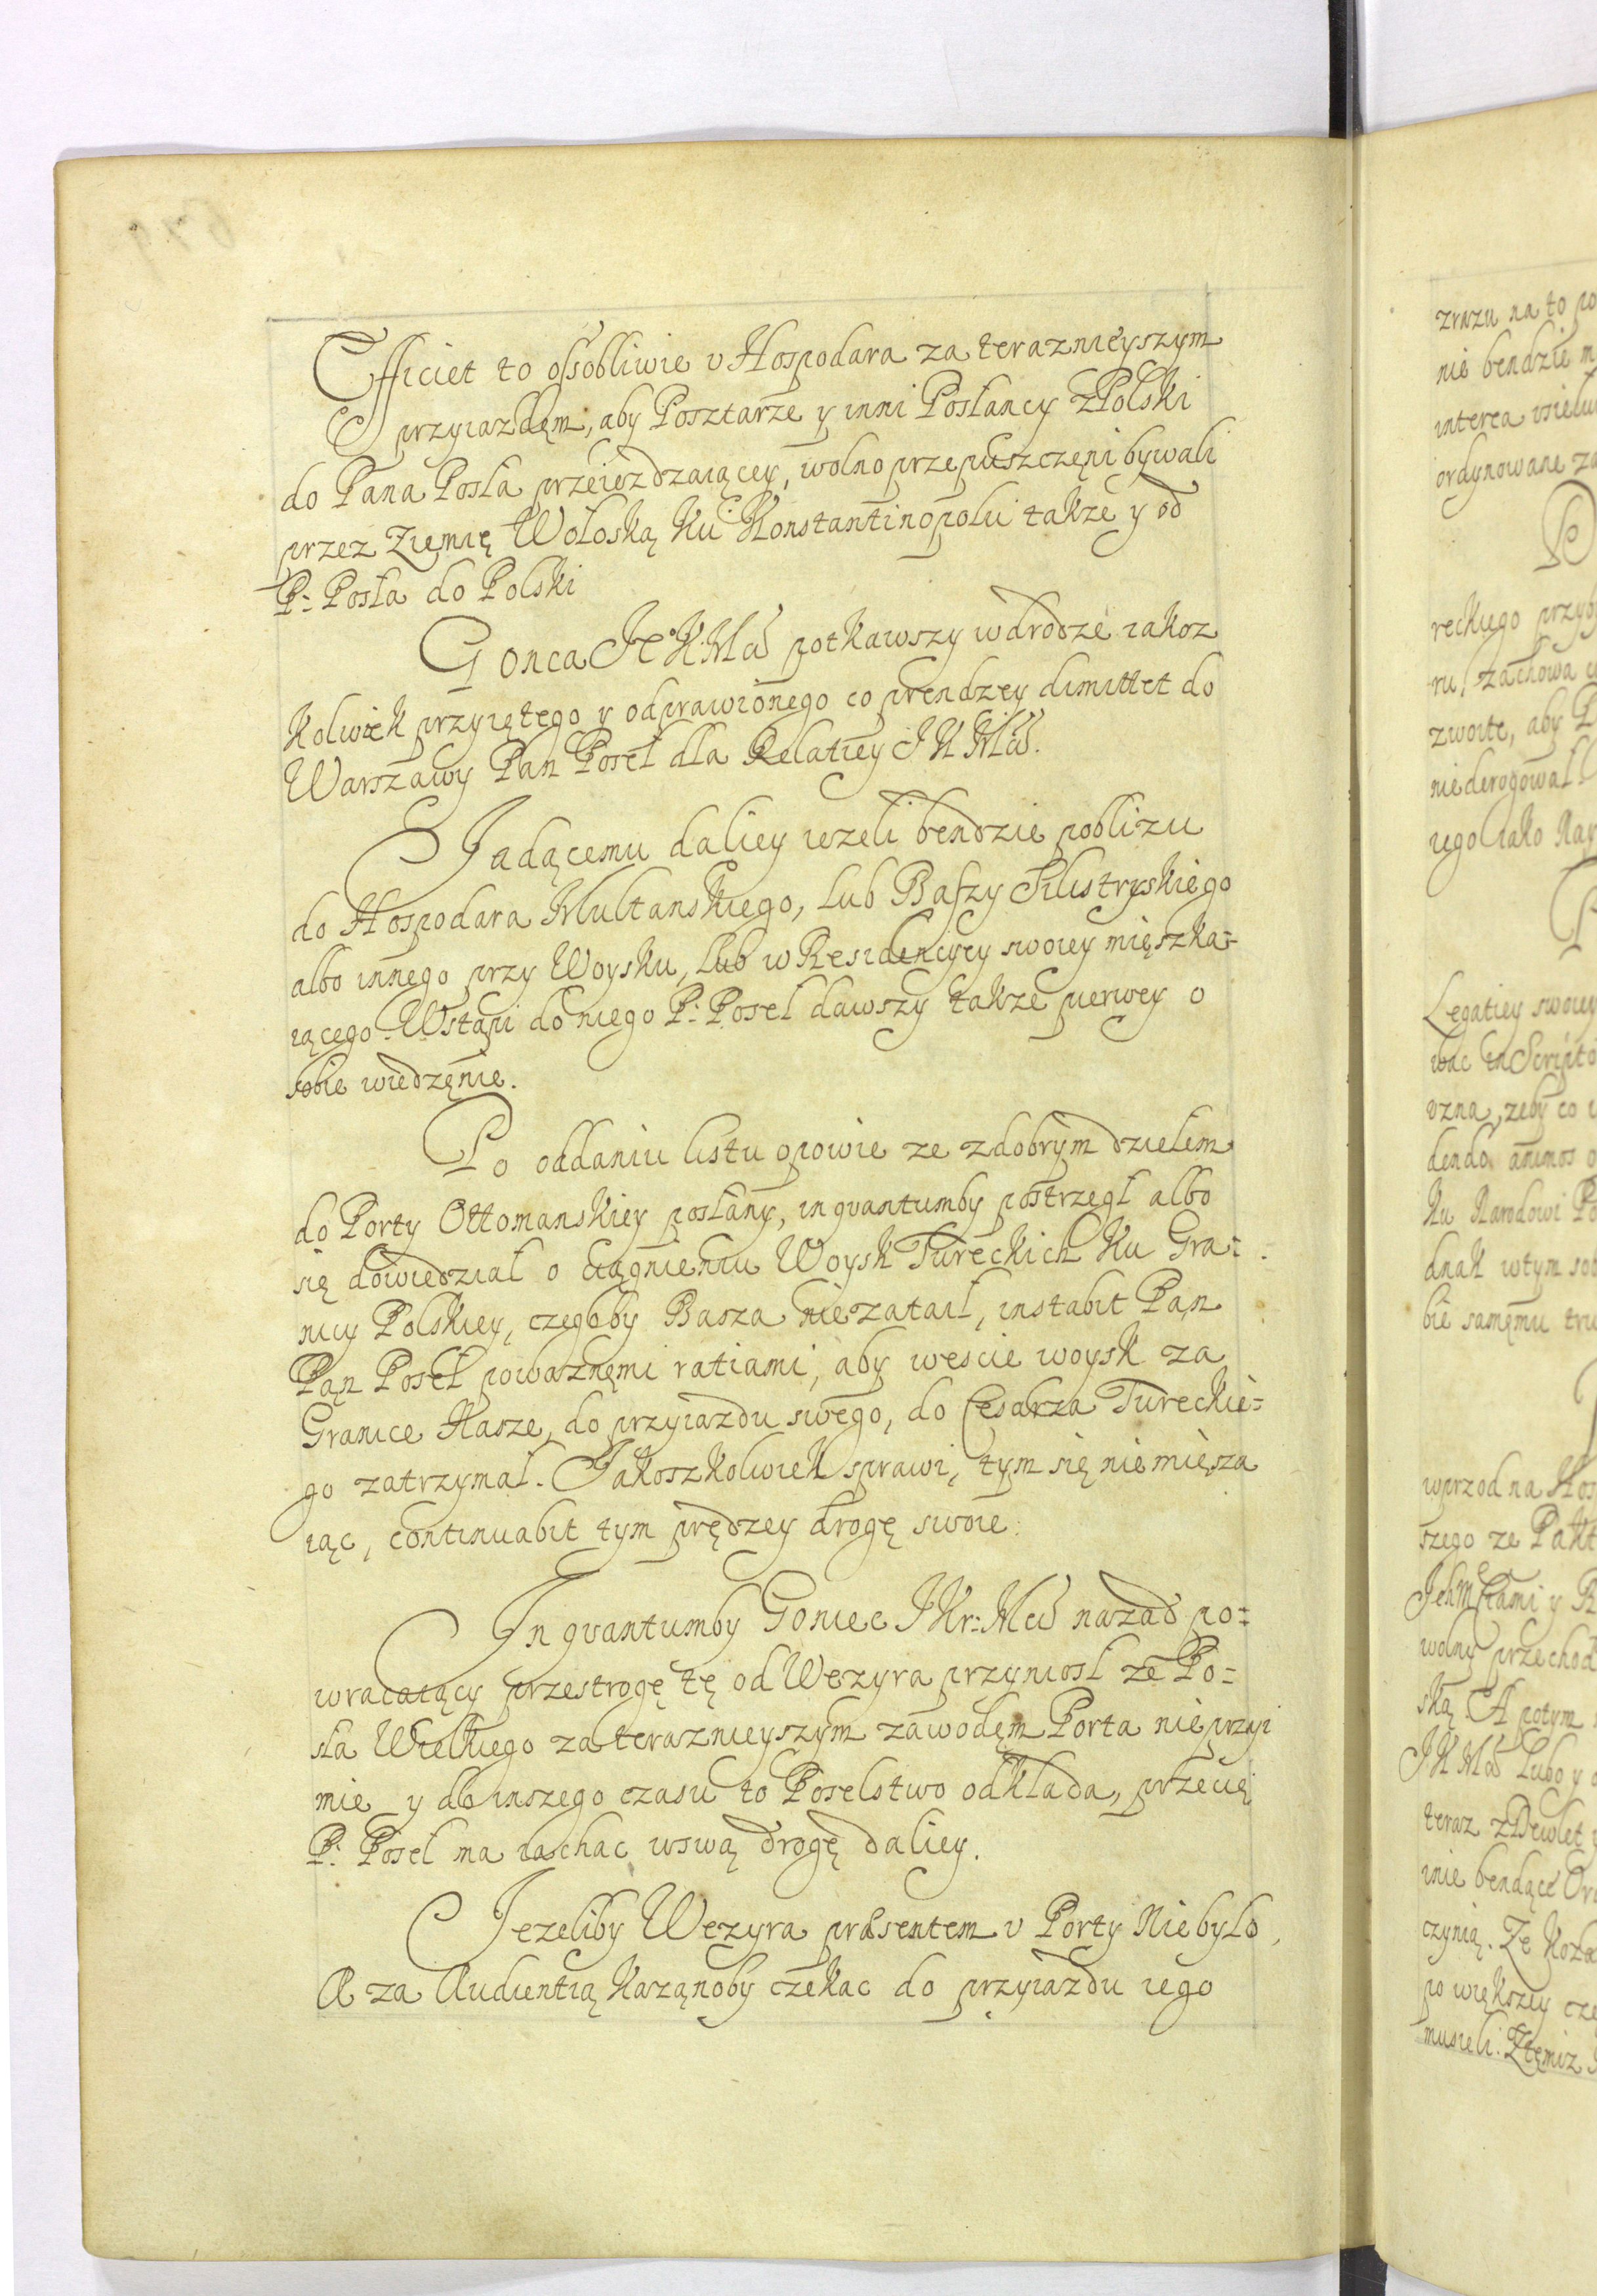 Efficiet to ossobliwie v Hospodara za teraznieyszym
przyiazdęm, aby Posztarze y inni Posłancy z Polski
do Pana Posła przeiezdzaiącey, wolno przepuszczęni bywali
przez Zięmię Wołoską ku Konstantinopolu takze y od
P: Posła do Polski
Gonca Je° K: Mći potkawszy w drodze iakoz
kolwiek przyiętego y odprawionego co prendzey dimittet do
Warszawy Pan Poseł dla Relatiey J K Mći.
Jadącemu daliey iezeli bendzie poblizu
do Hospodara Multanskiego, lub Baszy Silistryskiego
albo innego przy Woysku, lub w Residencyey swoiey mięszka=
iącego. Wstąpi do niego P: Poseł dawszy takze pierwey o
sobie wiedzęnie.
Po oddaniu listu opowie ze z dobrym dziełem
do Porty Ottomanskiey posłany, in quantumby postrzegł albo
się dowiedział o ciągnieniu Woysk Tureckich ku Gra=
nicy Polskiey, czegoby Basza nie zataił, instabit Pan
Pan Poseł powaznęmi ratiami, aby wescie woysk za
Granice Nasze, do przyiazdu swego, do Cesarza Tureckie=
go zatrzymał. Jakoszkolwiek sprawi, tym się nie mięsza
iąc, continuabit tym prędzey drogę swoie.
In quantumby Goniec J Kr: Mći nazad po=
wracaiący przestrogę tę od Wezyra przyniosł ze Po=
sła Wielkiego za teraznieyszym zawodęm Porta nie przyi
mie y do inszego czasu to Poselstwo odkłada, przecię
P: Poseł ma iachac w swą drogę daliey.
Jezeliby Wezyra præsentem v Porty Niebyło,
A za Audientią kaząnoby czekac do przyiazdu iego
zrazu na to po
nie bendzie m
interea
ordynowane za
reckiego przyb
ru, zachowa
zwoite, aby P
nie derogował
iego iako Nay
Legatiey swoiey
wac in Scripto
vzna, zeby co
dendo animos o
ku Narodowi Po
dnak w tym sob
bie samęmu tru
wprzod na Hos
szego ze Pakt
wolny przechod
ską. A potym
J K Mći Lubo y
teraz z Dewlet
inie bendące Or
czynią. Ze Koza
po większey czę
musieli.